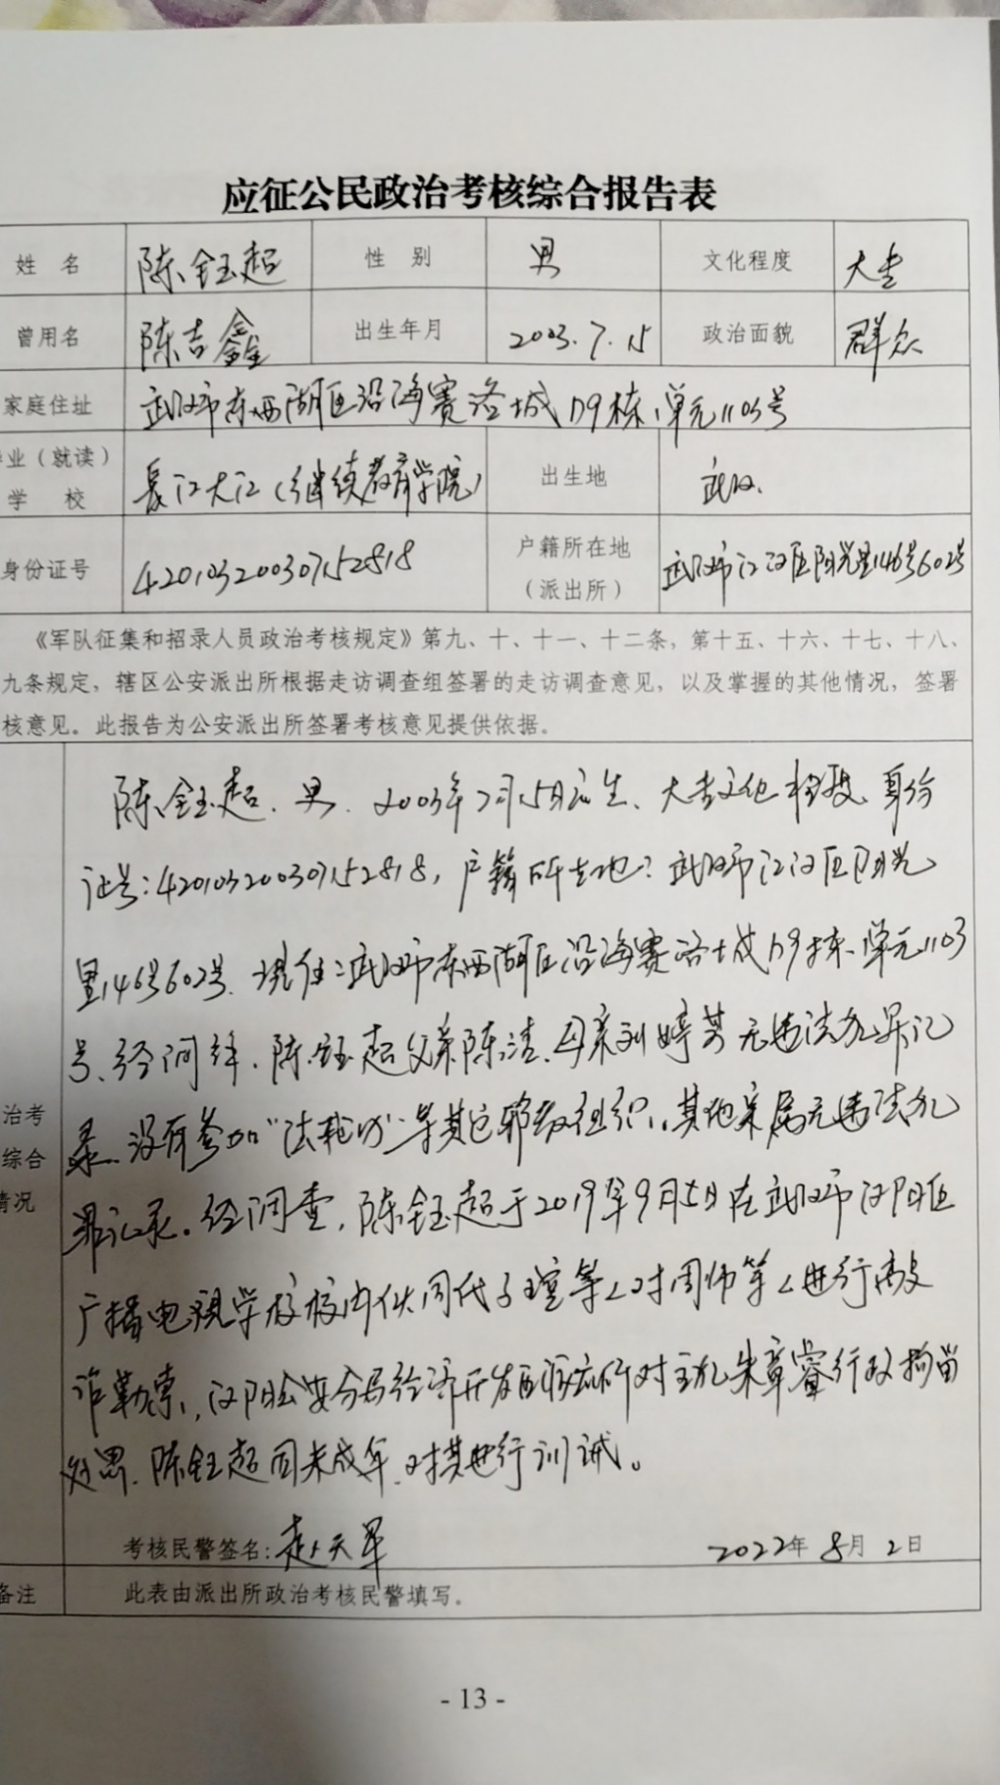 应征公民政治考核综合报告表
姓 名 陈钰超 性 别 男 文化程度 大专
曾用名 陈吉鑫 出生年月 2003.7.15 政治面貌 群众
家庭住址 武汉市东西湖区沿海赛洛城179栋1单元1103号
业（就读）
学 校 长江大江（继续教育学院） 出生地 武汉.
身份证号 420103200307152818 户籍所在地
（派出所） 武汉市江汉区阳光里146号602号
《军队征集和招录人员政治考核规定》第九、十、十一、十二条，第十五、十六、十七、十八、
九条规定，辖区公安派出所根据走访调查组签署的走访调查意见，以及掌握的其他情况，签署
核意见。此报告为公安派出所签署考核意见提供依据。
陈钰超、男、2003年7月15日出生、大专文化程度、身份
证号：420103200307152818，户籍所在地：武汉市江汉区阳光
里146号602号、现住：武汉市东西湖区沿海赛洛城179栋1单元1103
号、经调查、陈钰超父亲陈洁、母亲刘婷芳无违法犯罪记
录、没有参加“法轮功”等其它邪教组织、其他家属无违法犯
罪记录。经调查，陈钰超于2019年9月5日在武汉市汉阳区
广播电视学校校内伙同代子瑄等人对周帅等人进行敲
诈勒索，汉阳公安分局经济开发区派出所对主犯朱章睿行政拘留
处罚、陈钰超因未成年、对其进行训诫。
治考
综合
情况
考核民警签名：赵天军 2022年8月2日
备注 此表由派出所政治考核民警填写。
- 13 -